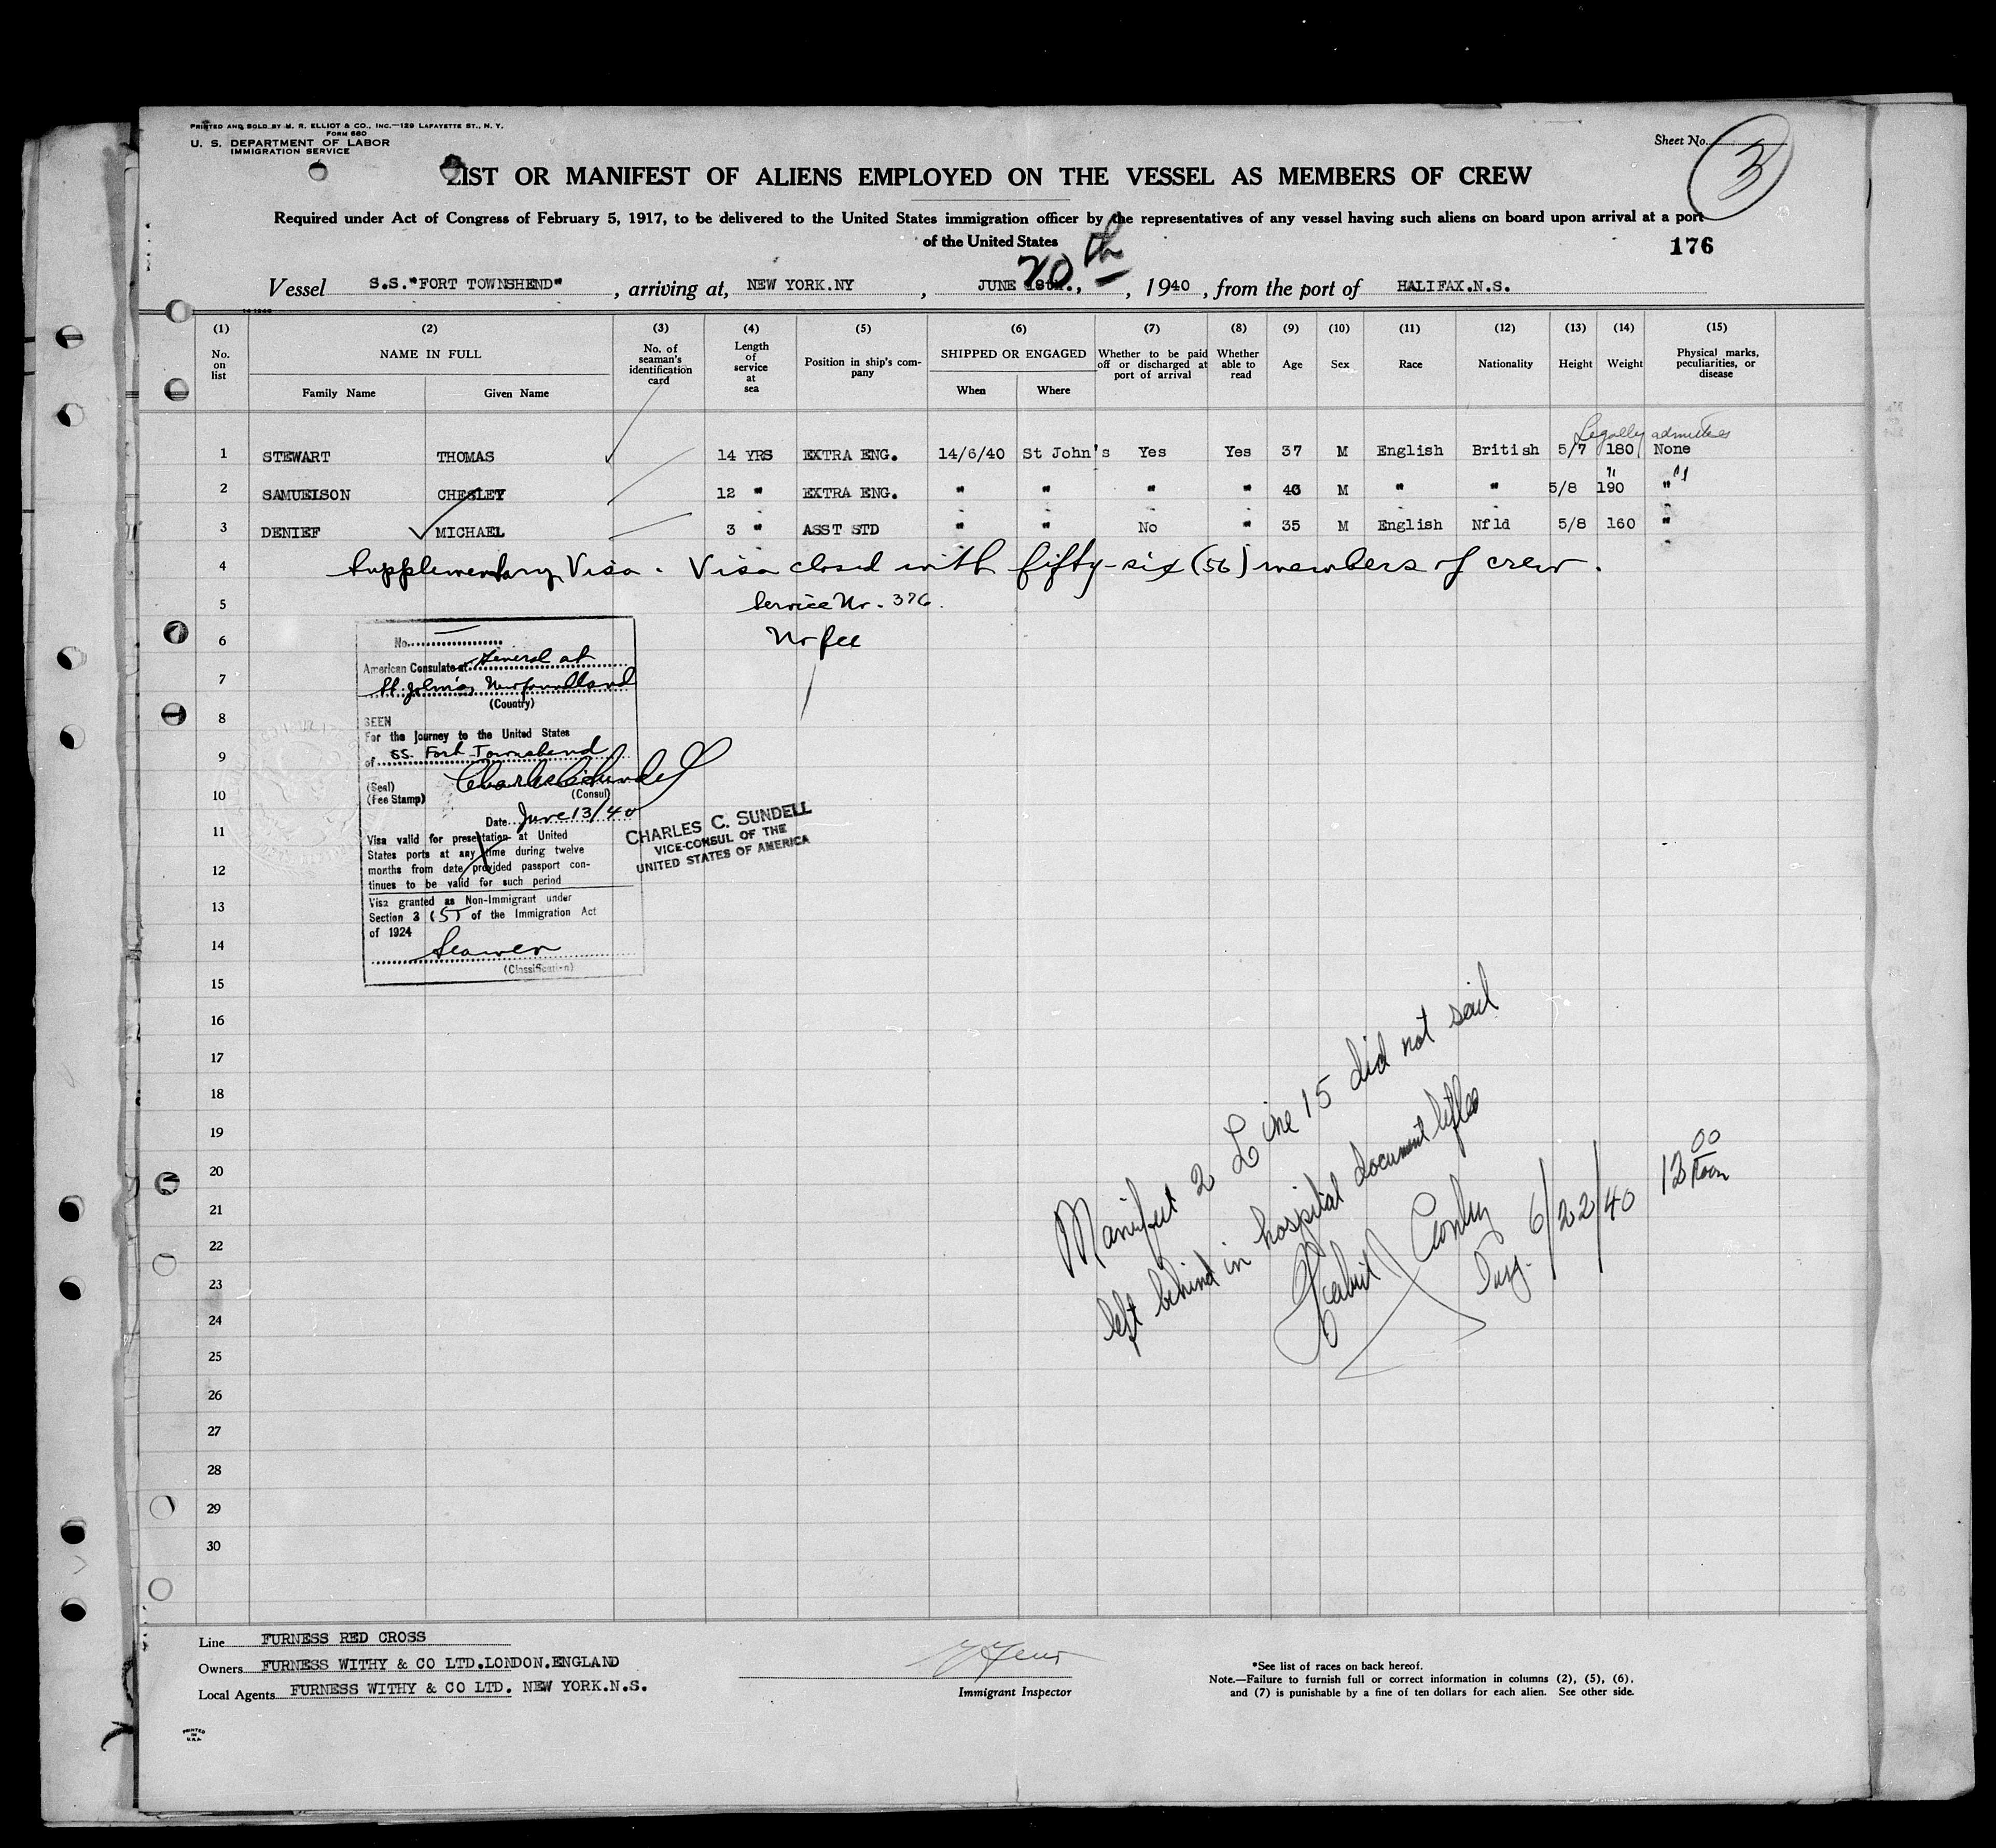 PRINTED AND SOLD BY M. R. ELLIOT & CO., INC.—129 LAFAYETTE ST., N. Y.
FORM 680
U. S. DEPARTMENT OF LABOR
IMMIGRATION SERVICE
Sheet No. 3
LIST OR MANIFEST OF ALIENS EMPLOYED ON THE VESSEL AS MEMBERS OF CREW
Required under Act of Congress of February 5, 1917, to be delivered to the United States immigration officer by the representatives of any vessel having such aliens on board upon arrival at a port
of the United States
176
Vessel S.S."FORT TOWNSHEND", arriving at, NEW YORK.NY, JUNE 20th, 1940, from the port of HALIFAX.N.S.
(1) (2) (3) (4) (5) (6) (7) (8) (9) (10) (11) (12) (13) (14) (15)
No. on list NAME IN FULL Family Name Given Name No. of seaman's identification card Length of service at sea Position in ship's company SHIPPED OR ENGAGED When Where Whether to be paid off or discharged at port of arrival Whether able to read Age Sex Race Nationality Height Weight Physical marks, peculiarities, or disease
Legally admitted
1 STEWART THOMAS 14 YRS EXTRA ENG. 14/6/40 St John's Yes Yes 37 M English British 5/7 180 None
" "
2 SAMUELSON CHESLEY 12 " EXTRA ENG. " " " " 40 M " " 5/8 190 "
3 DENIEF MICHAEL 3 " ASST STD " " No " 35 M English Nfld 5/8 160 "
4 Supplementary Visa. Visa closed with fifty-six (56) members of crew.
5 Service No. 376.
6 No fee
No.
American Consulate at General at
7 St. John's, Newfoundland
(Country)
8 SEEN
For the journey to the United States
9 of SS. Fort Townshend
(Seal)
(Fee Stamp)
Charles C. Sundell
10 (Consul)
Date June 13/40
11 CHARLES C. SUNDELL
VICE-CONSUL OF THE
UNITED STATES OF AMERICA
Visa valid for presentation at United
States ports at any time during twelve
12 months from date provided passport con-
tinues to be valid for such period
13 Visa granted as Non-Immigrant under
Section 3 (5) of the Immigration Act
of 1924
14 Seamen
(Classification)
15
16
17
18
19
20
21
22
23
24
25
26
27
28
29
30
Manifest 2 Line 15 did not sail
left behind in hospital document
6/22/40
12 00 Noon
Line FURNESS RED CROSS
Owners FURNESS WITHY & CO LTD.LONDON.ENGLAND
Local Agents FURNESS WITHY & CO LTD. NEW YORK.N.S.
Immigrant Inspector
*See list of races on back hereof.
Note.—Failure to furnish full or correct information in columns (2), (5), (6),
and (7) is punishable by a fine of ten dollars for each alien. See other side.
PRINTED
IN
U.S.A.